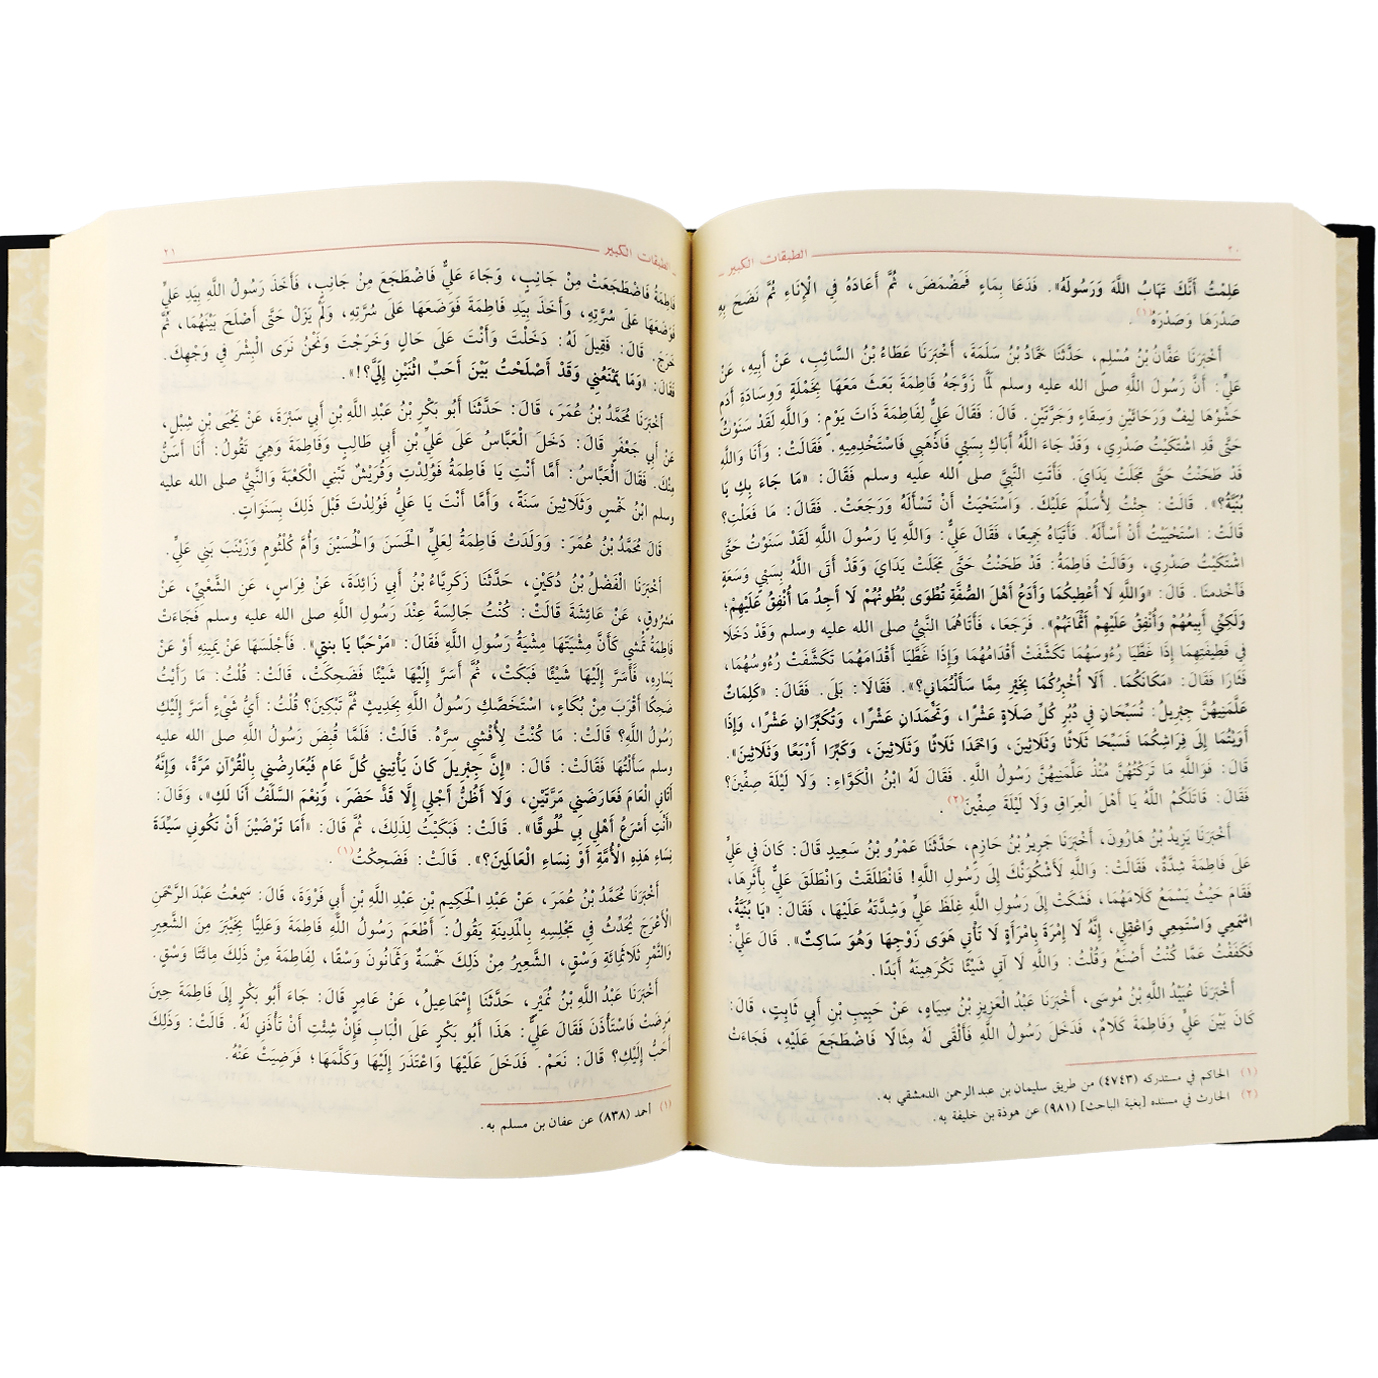 ٢٠ الطبقات الكبير
عَلِمْتُ أَنَّكَ تَهَابُ اللَّهَ وَرَسُولَهُ». فَدَعَا بِمَاءٍ فَمَضْمَضَ، ثُمَّ أَعَادَهُ فِي الْإِنَاءِ ثُمَّ نَضَحَ بِهِ
صَدْرَهَا وَصَدْرَهُ(١).
أَخْبَرَنَا عَفَّانُ بْنُ مُسْلِمٍ، حَدَّثَنَا حَمَّادُ بْنُ سَلَمَةَ، أَخْبَرَنَا عَطَاءُ بْنُ السَّائِبِ، عَنْ أَبِيهِ، عَنْ
عَلِيٍّ: أَنَّ رَسُولَ اللَّهِ صلى الله عليه وسلم لَمَّا زَوَّجَهُ فَاطِمَةَ بَعَثَ مَعَهَا بِخَمْلَةٍ وَوِسَادَةِ أَدَمٍ
حَشْوُهَا لِيفٌ وَرَحَائَيْنِ وَسِقَاءٍ وَجَرَّتَيْنِ. قَالَ: فَقَالَ عَلِيٌّ لِفَاطِمَةَ ذَاتَ يَوْمٍ: وَاللَّهِ لَقَدْ سَنَوْتُ
حَتَّى قَدِ اشْتَكَيْتُ صَدْرِي، وَقَدْ جَاءَ اللَّهُ أَبَاكِ بِسَبْيٍ فَاذْهَبِي فَاسْتَخْدِمِيهِ. فَقَالَتْ: وَأَنَا وَاللَّهِ
قَدْ طَحَنْتُ حَتَّى مَجَلَتْ يَدَايَ. فَأَتَتِ النَّبِيَّ صلى الله عليه وسلم فَقَالَ: «مَا جَاءَ بِكِ يَا
بُنَيَّةُ؟». قَالَتْ: جِئْتُ لِأُسَلِّمَ عَلَيْكَ. وَاسْتَحْيَتْ أَنْ تَسْأَلَهُ وَرَجَعَتْ. فَقَالَ: مَا فَعَلْتِ؟
قَالَتْ: اسْتَحْيَيْتُ أَنْ أَسْأَلَهُ. فَأَتَيَاهُ جَمِيعًا، فَقَالَ عَلِيٌّ: وَاللَّهِ يَا رَسُولَ اللَّهِ لَقَدْ سَنَوْتُ حَتَّى
اشْتَكَيْتُ صَدْرِي، وَقَالَتْ فَاطِمَةُ: قَدْ طَحَنْتُ حَتَّى مَجَلَتْ يَدَايَ وَقَدْ أَتَى اللَّهُ بِسَبْيٍ وَسَعَةٍ
فَأَخْدِمْنَا. قَالَ: «وَاللَّهِ لَا أُعْطِيكُمَا وَأَدَعُ أَهْلَ الصُّفَّةِ تُطْوَى بُطُونُهُمْ لَا أَجِدُ مَا أُنْفِقُ عَلَيْهِمْ؛
وَلَكِنِّي أَبِيعُهُمْ وَأُنْفِقُ عَلَيْهِمْ أَثْمَانَهُمْ». فَرَجَعَا، فَأَتَاهُمَا النَّبِيُّ صلى الله عليه وسلم وَقَدْ دَخَلَا
فِي قَطِيفَتِهِمَا إِذَا غَطَّيَا رُءُوسَهُمَا تَكَشَّفَتْ أَقْدَامُهُمَا وَإِذَا غَطَّيَا أَقْدَامَهُمَا تَكَشَّفَتْ رُءُوسُهُمَا،
فَثَارَا فَقَالَ: «مَكَانَكُمَا. أَلَا أُخْبِرُكُمَا بِخَيْرٍ مِمَّا سَأَلْتُمَانِي؟». فَقَالَا: بَلَى. فَقَالَ: «كَلِمَاتٌ
عَلَّمَنِيهِنَّ جِبْرِيلُ: تُسَبِّحَانِ فِي دُبُرِ كُلِّ صَلَاةٍ عَشْرًا، وَتَحْمَدَانِ عَشْرًا، وَتُكَبِّرَانِ عَشْرًا، وَإِذَا
أَوَيْتُمَا إِلَى فِرَاشِكُمَا فَسَبِّحَا ثَلَاثًا وَثَلَاثِينَ، وَاحْمَدَا ثَلَاثًا وَثَلَاثِينَ، وَكَبِّرَا أَرْبَعًا وَثَلَاثِينَ».
قَالَ: فَوَاللَّهِ مَا تَرَكْتُهُنَّ مُنْذُ عَلَّمَنِيهُنَّ رَسُولُ اللَّهِ. فَقَالَ لَهُ ابْنُ الْكَوَّاءِ: وَلَا لَيْلَةَ صِفِّينَ؟
فَقَالَ: قَاتَلَكُمُ اللَّهُ يَا أَهْلَ الْعِرَاقِ وَلَا لَيْلَةَ صِفِّينَ(٢).
أَخْبَرَنَا يَزِيدُ بْنُ هَارُونَ، أَخْبَرَنَا جَرِيرُ بْنُ حَازِمٍ، حَدَّثَنَا عَمْرُو بْنُ سَعِيدٍ قَالَ: كَانَ فِي عَلِيٍّ
عَلَى فَاطِمَةَ شِدَّةٌ، فَقَالَتْ: وَاللَّهِ لَأَشْكُوَنَّكَ إِلَى رَسُولِ اللَّهِ! فَانْطَلَقَتْ وَانْطَلَقَ عَلِيٌّ بِأَثَرِهَا،
فَقَامَ حَيْثُ يَسْمَعُ كَلَامَهُمَا، فَشَكَتْ إِلَى رَسُولِ اللَّهِ غِلَظَ عَلِيٍّ وَشِدَّتَهُ عَلَيْهَا، فَقَالَ: «يَا بُنَيَّةُ،
اسْمَعِي وَاسْتَمِعِي وَاعْقِلِي، إِنَّهُ لَا إِمْرَةَ بِامْرَأَةٍ لَا تَأْتِي هَوَى زَوْجِهَا وَهُوَ سَاكِتٌ». قَالَ عَلِيٌّ:
فَكَفَفْتُ عَمَّا كُنْتُ أَصْنَعُ وَقُلْتُ: وَاللَّهِ لَا آتِي شَيْئًا تَكْرَهِينَهُ أَبَدًا.
أَخْبَرَنَا عُبَيْدُ اللَّهِ بْنُ مُوسَى، أَخْبَرَنَا عَبْدُ الْعَزِيزِ بْنُ سِيَاهٍ، عَنْ حَبِيبِ بْنِ أَبِي ثَابِتٍ، قَالَ:
كَانَ بَيْنَ عَلِيٍّ وَفَاطِمَةَ كَلَامٌ، فَدَخَلَ رَسُولُ اللَّهِ فَأَلْقَى لَهُ مِثَالًا فَاضْطَجَعَ عَلَيْهِ، فَجَاءَتْ
(١) الحاكم في مستدركه (٤٧٤٣) من طريق سليمان بن عبد الرحمن الدمشقي به.
(٢) الحارث في مسنده [بغية الباحث] (٩٨١) عن هوذة بن خليفة به.
الطبقات الكبير ٢١
فَاطِمَةُ فَاضْطَجَعَتْ مِنْ جَانِبٍ، وَجَاءَ عَلِيٌّ فَاضْطَجَعَ مِنْ جَانِبٍ، فَأَخَذَ رَسُولُ اللَّهِ بِيَدِ عَلِيٍّ
فَوَضَعَهَا عَلَى سُرَّتِهِ، وَأَخَذَ بِيَدِ فَاطِمَةَ فَوَضَعَهَا عَلَى سُرَّتِهِ، وَلَمْ يَزَلْ حَتَّى أَصْلَحَ بَيْنَهُمَا، ثُمَّ
خَرَجَ. قَالَ: فَقِيلَ لَهُ: دَخَلْتَ وَأَنْتَ عَلَى حَالٍ وَخَرَجْتَ وَنَحْنُ نَرَى الْبِشْرَ فِي وَجْهِكَ.
فَقَالَ: «وَمَا يَمْنَعُنِي وَقَدْ أَصْلَحْتُ بَيْنَ أَحَبِّ اثْنَيْنِ إِلَيَّ؟!».
أَخْبَرَنَا مُحَمَّدُ بْنُ عُمَرَ، قَالَ: حَدَّثَنَا أَبُو بَكْرِ بْنُ عَبْدِ اللَّهِ بْنِ أَبِي سَبْرَةَ، عَنْ يَحْيَى بْنِ شِبْلٍ،
عَنْ أَبِي جَعْفَرٍ قَالَ: دَخَلَ الْعَبَّاسُ عَلَى عَلِيِّ بْنِ أَبِي طَالِبٍ وَفَاطِمَةَ وَهِيَ تَقُولُ: أَنَا أَسَنُّ
مِنْكَ. فَقَالَ الْعَبَّاسُ: أَمَّا أَنْتِ يَا فَاطِمَةُ فَوُلِدْتِ وَقُرَيْشٌ تَبْنِي الْكَعْبَةَ وَالنَّبِيُّ صلى الله عليه
وسلم ابْنُ خَمْسٍ وَثَلَاثِينَ سَنَةً، وَأَمَّا أَنْتَ يَا عَلِيُّ فَوُلِدْتَ قَبْلَ ذَلِكَ بِسَنَوَاتٍ.
قَالَ مُحَمَّدُ بْنُ عُمَرَ: وَوَلَدَتْ فَاطِمَةُ لِعَلِيٍّ الْحَسَنَ وَالْحُسَيْنَ وَأُمَّ كُلْثُومٍ وَزَيْنَبَ بَنِي عَلِيٍّ.
أَخْبَرَنَا الْفَضْلُ بْنُ دُكَيْنٍ، حَدَّثَنَا زَكَرِيَّاءُ بْنُ أَبِي زَائِدَةَ، عَنْ فِرَاسٍ، عَنِ الشَّعْبِيِّ، عَنْ
مَسْرُوقٍ، عَنْ عَائِشَةَ قَالَتْ: كُنْتُ جَالِسَةً عِنْدَ رَسُولِ اللَّهِ صلى الله عليه وسلم فَجَاءَتْ
فَاطِمَةُ تَمْشِي كَأَنَّ مِشْيَتَهَا مِشْيَةُ رَسُولِ اللَّهِ فَقَالَ: «مَرْحَبًا يَا بنتي». فَأَجْلَسَهَا عَنْ يَمِينِهِ أَوْ عَنْ
يَسَارِهِ، فَأَسَرَّ إِلَيْهَا شَيْئًا فَبَكَتْ، ثُمَّ أَسَرَّ إِلَيْهَا شَيْئًا فَضَحِكَتْ، قَالَتْ: قُلْتُ: مَا رَأَيْتُ
ضَحِكًا أَقْرَبَ مِنْ بُكَاءٍ، اسْتَخَصَّكِ رَسُولُ اللَّهِ بِحَدِيثٍ ثُمَّ تَبْكِينَ؟ قُلْتُ: أَيُّ شَيْءٍ أَسَرَّ إِلَيْكِ
رَسُولُ اللَّهِ؟ قَالَتْ: مَا كُنْتُ لِأُفْشِيَ سِرَّهُ. قَالَتْ: فَلَمَّا قُبِضَ رَسُولُ اللَّهِ صلى الله عليه
وسلم سَأَلْتُهَا فَقَالَتْ: قَالَ: «إِنَّ جِبْرِيلَ كَانَ يَأْتِينِي كُلَّ عَامٍ فَيُعَارِضُنِي بِالْقُرْآنِ مَرَّةً، وَإِنَّهُ
أَتَانِي الْعَامَ فَعَارَضَنِي مَرَّتَيْنِ، وَلَا أَظُنُّ أَجَلِي إِلَّا قَدْ حَضَرَ، وَنِعْمَ السَّلَفُ أَنَا لَكِ»، وَقَالَ:
«أَنْتِ أَسْرَعُ أَهْلِي بِي لُحُوقًا». قَالَتْ: فَبَكَيْتُ لِذَلِكَ، ثُمَّ قَالَ: «أَمَا تَرْضَيْنَ أَنْ تَكُونِي سَيِّدَةَ
نِسَاءِ هَذِهِ الْأُمَّةِ أَوْ نِسَاءِ الْعَالَمِينَ؟». قَالَتْ: فَضَحِكْتُ(١).
أَخْبَرَنَا مُحَمَّدُ بْنُ عُمَرَ، عَنْ عَبْدِ الْحَكِيمِ بْنِ عَبْدِ اللَّهِ بْنِ أَبِي فَرْوَةَ، قَالَ: سَمِعْتُ عَبْدَ الرَّحْمَنِ
الْأَعْرَجَ يُحَدِّثُ فِي مَجْلِسِهِ بِالْمَدِينَةِ يَقُولُ: أَطْعَمَ رَسُولُ اللَّهِ فَاطِمَةَ وَعَلِيًّا بِخَيْبَرَ مِنَ الشَّعِيرِ
وَالتَّمْرِ ثَلَاثَمِائَةِ وَسْقٍ، الشَّعِيرُ مِنْ ذَلِكَ خَمْسَةٌ وَثَمَانُونَ وَسْقًا، لِفَاطِمَةَ مِنْ ذَلِكَ مِائَتَا وَسْقٍ.
أَخْبَرَنَا عَبْدُ اللَّهِ بْنُ نُمَيْرٍ، حَدَّثَنَا إِسْمَاعِيلُ، عَنْ عَامِرٍ قَالَ: جَاءَ أَبُو بَكْرٍ إِلَى فَاطِمَةَ حِينَ
مَرِضَتْ فَاسْتَأْذَنَ فَقَالَ عَلِيٌّ: هَذَا أَبُو بَكْرٍ عَلَى الْبَابِ فَإِنْ شِئْتِ أَنْ تَأْذَنِي لَهُ. قَالَتْ: وَذَلِكَ
أَحَبُّ إِلَيْكَ؟ قَالَ: نَعَمْ. فَدَخَلَ عَلَيْهَا وَاعْتَذَرَ إِلَيْهَا وَكَلَّمَهَا؛ فَرَضِيَتْ عَنْهُ.
(١) أحمد (٨٣٨) عن عفان بن مسلم به.